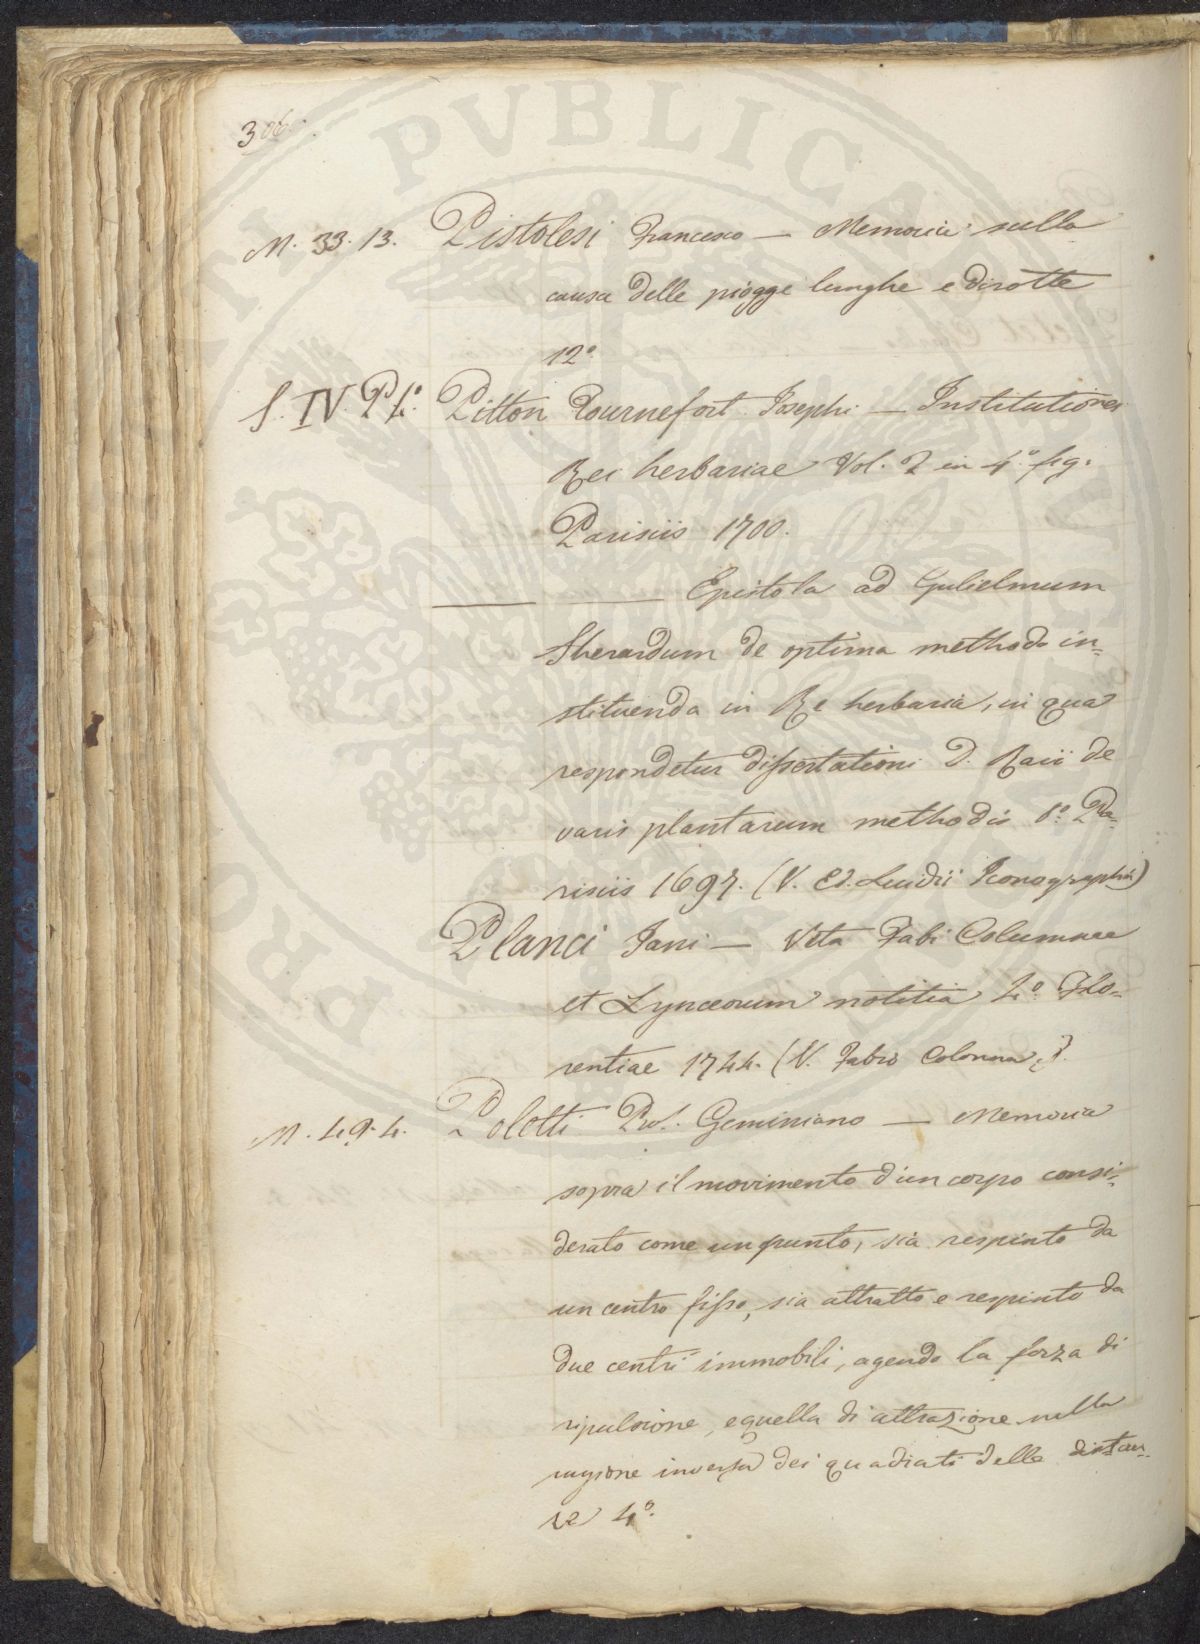 306.
M. 33. 13. Pistolesi Francesco — Memoria sulla
causa delle piogge lunghe e dirotte
12º
S. IV. P. Pitton Tournefort Josephi — Institutiones
Rei herbariae Vol. 2 in 4º fig.
Parisiis 1700.
— — Epistola ad Gulielmum
Sherardum de optima methodo in=
stituenda in Re herbaria, in qua
respondetur dissertationi D. Raii de
variis plantarum methodis 8º Pa=
risiis 1697. (V. Ed. Luidii Iconographia)
Planci Jani — Vita Fabi Columnae
et Lynceorum notitia 4º Flo=
rentiae 1744. (V. Fabio Colonna).
M. 49. 4. Polotti Prof. Geminiano — Memoria
sopra il movimento d'un corpo consi=
derato come un punto, sia respinto da
un centro fisso, sia attratto e respinto da
due centri immobili, agendo la forza di
ripulsione, e quella di attrazione nella
ragione inversa dei quadrati delle distan=
ze 4º.
PROVIDENTIA PVBLICA